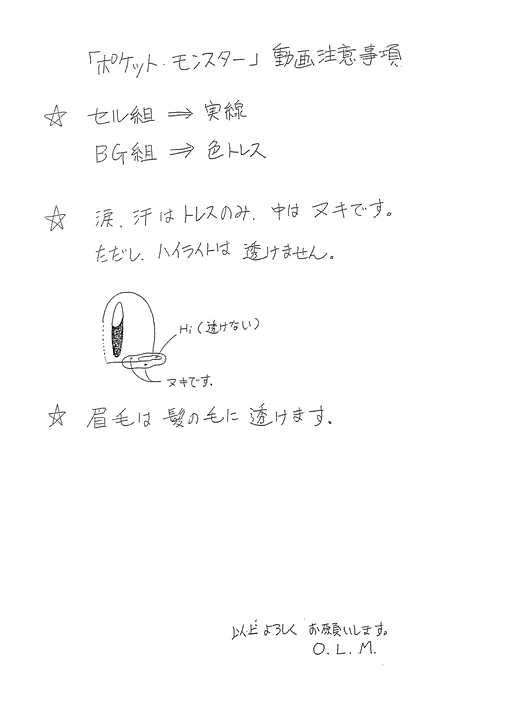 「ポケット・モンスター」動画注意事項
☆ セル組 ⇒ 実線
BG組 ⇒ 色トレス
☆ 涙、汗はトレスのみ、中はヌキです。
ただし、ハイライトは透けません。
Hi(透けない)
ヌキです。
☆ 眉毛は髪の毛に透けます。
以上よろしくお願いします。
O.L.M.